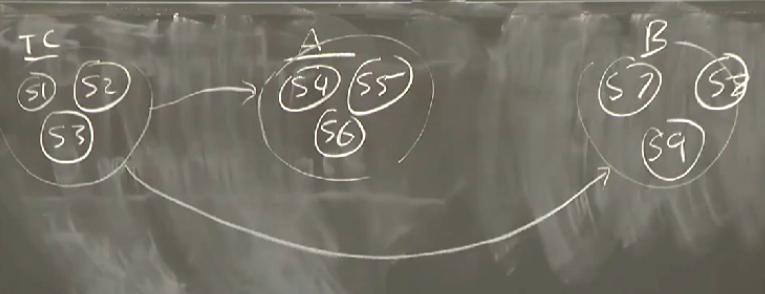 TC
S1 S2
S3
A
S4 S5
S6
B
S7 S8
S9